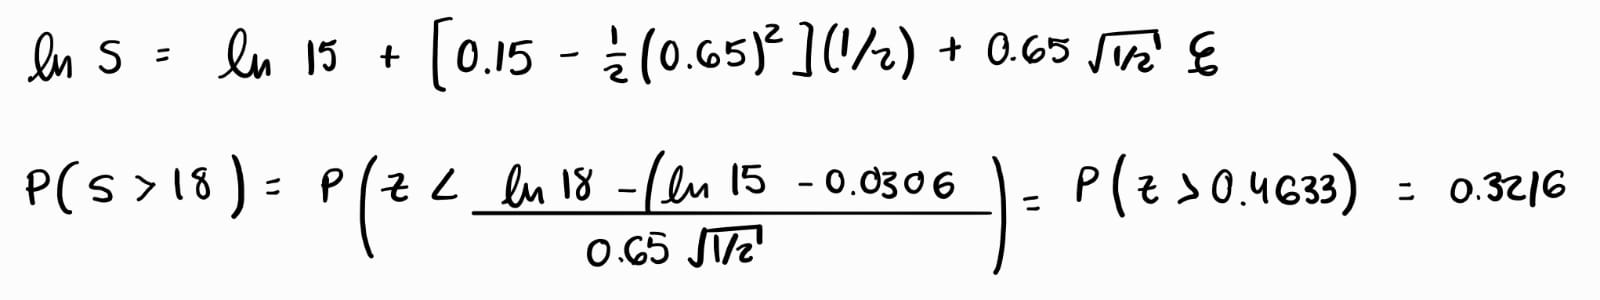 ln S = ln 15 + [0.15 - 1/2(0.65)²](1/2) + 0.65 √1/2 ε
P(S > 18) = P(z < (ln 18 - (ln 15 - 0.0306)/(0.65 √1/2)) = P(z > 0.4633) = 0.3216